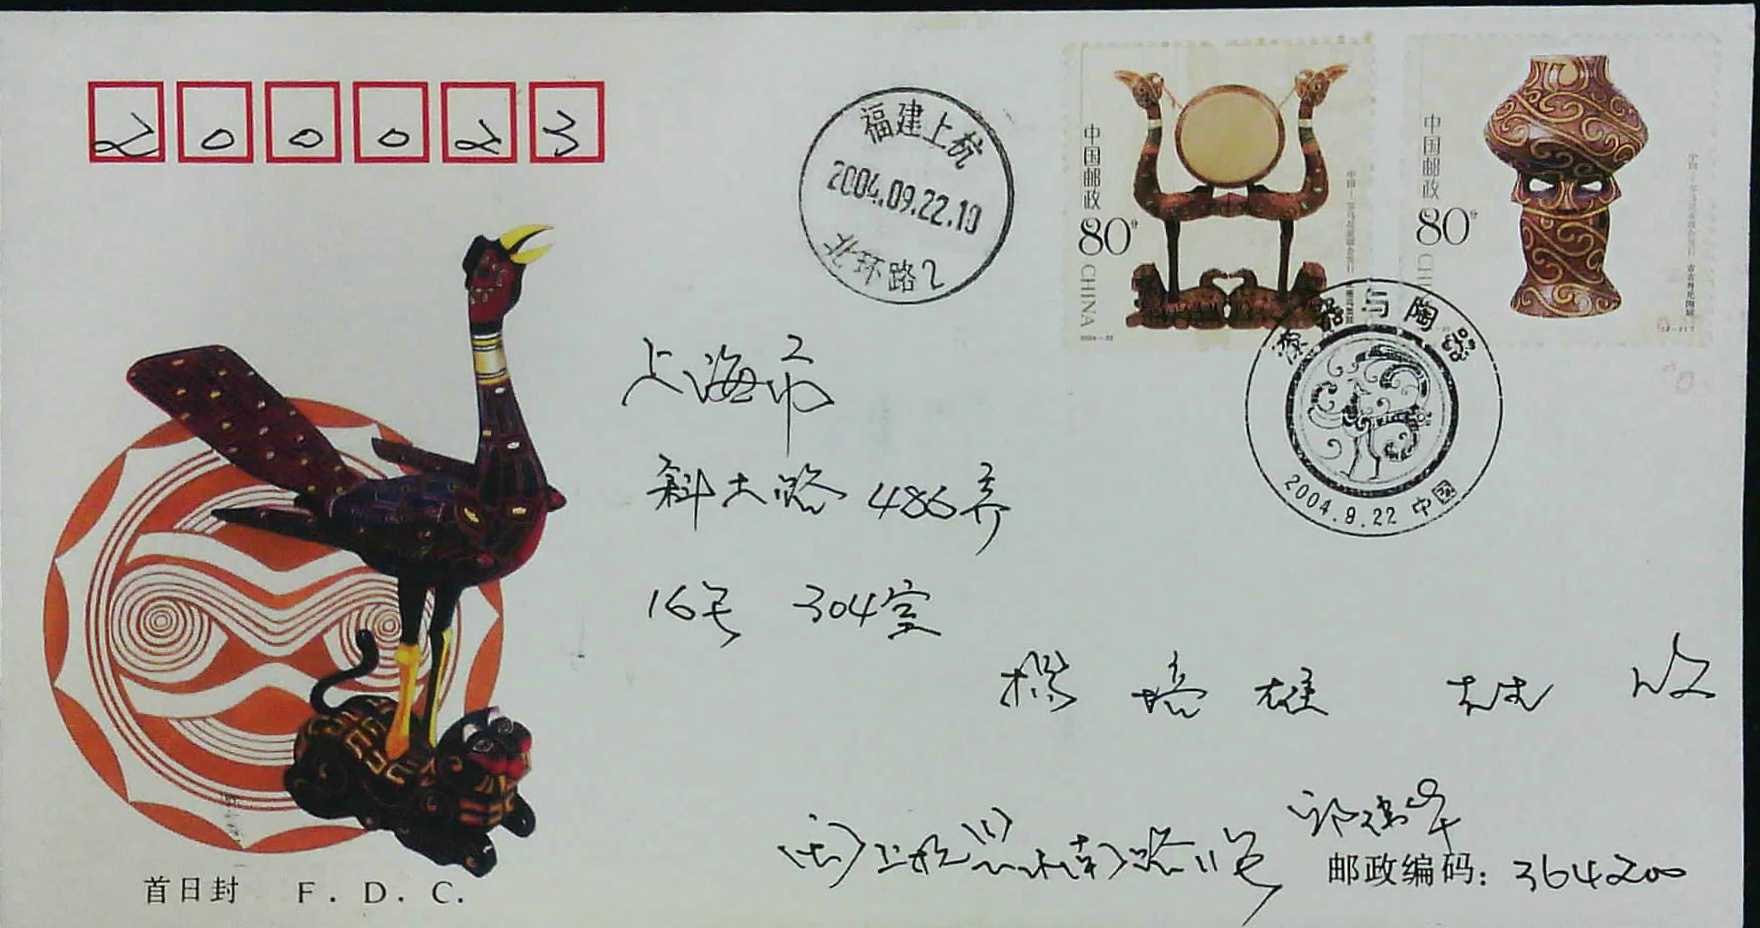 200023
福建上杭
2004.09.22.10
北环路2
中国邮政
80分
CHINA
中国邮政
80分
漆器与陶器
2004.9.22 中国
上海市
斜土路 486弄
16号 304室
杨培雄 收
路11号
邮政编码：364200
首日封 F.D.C.